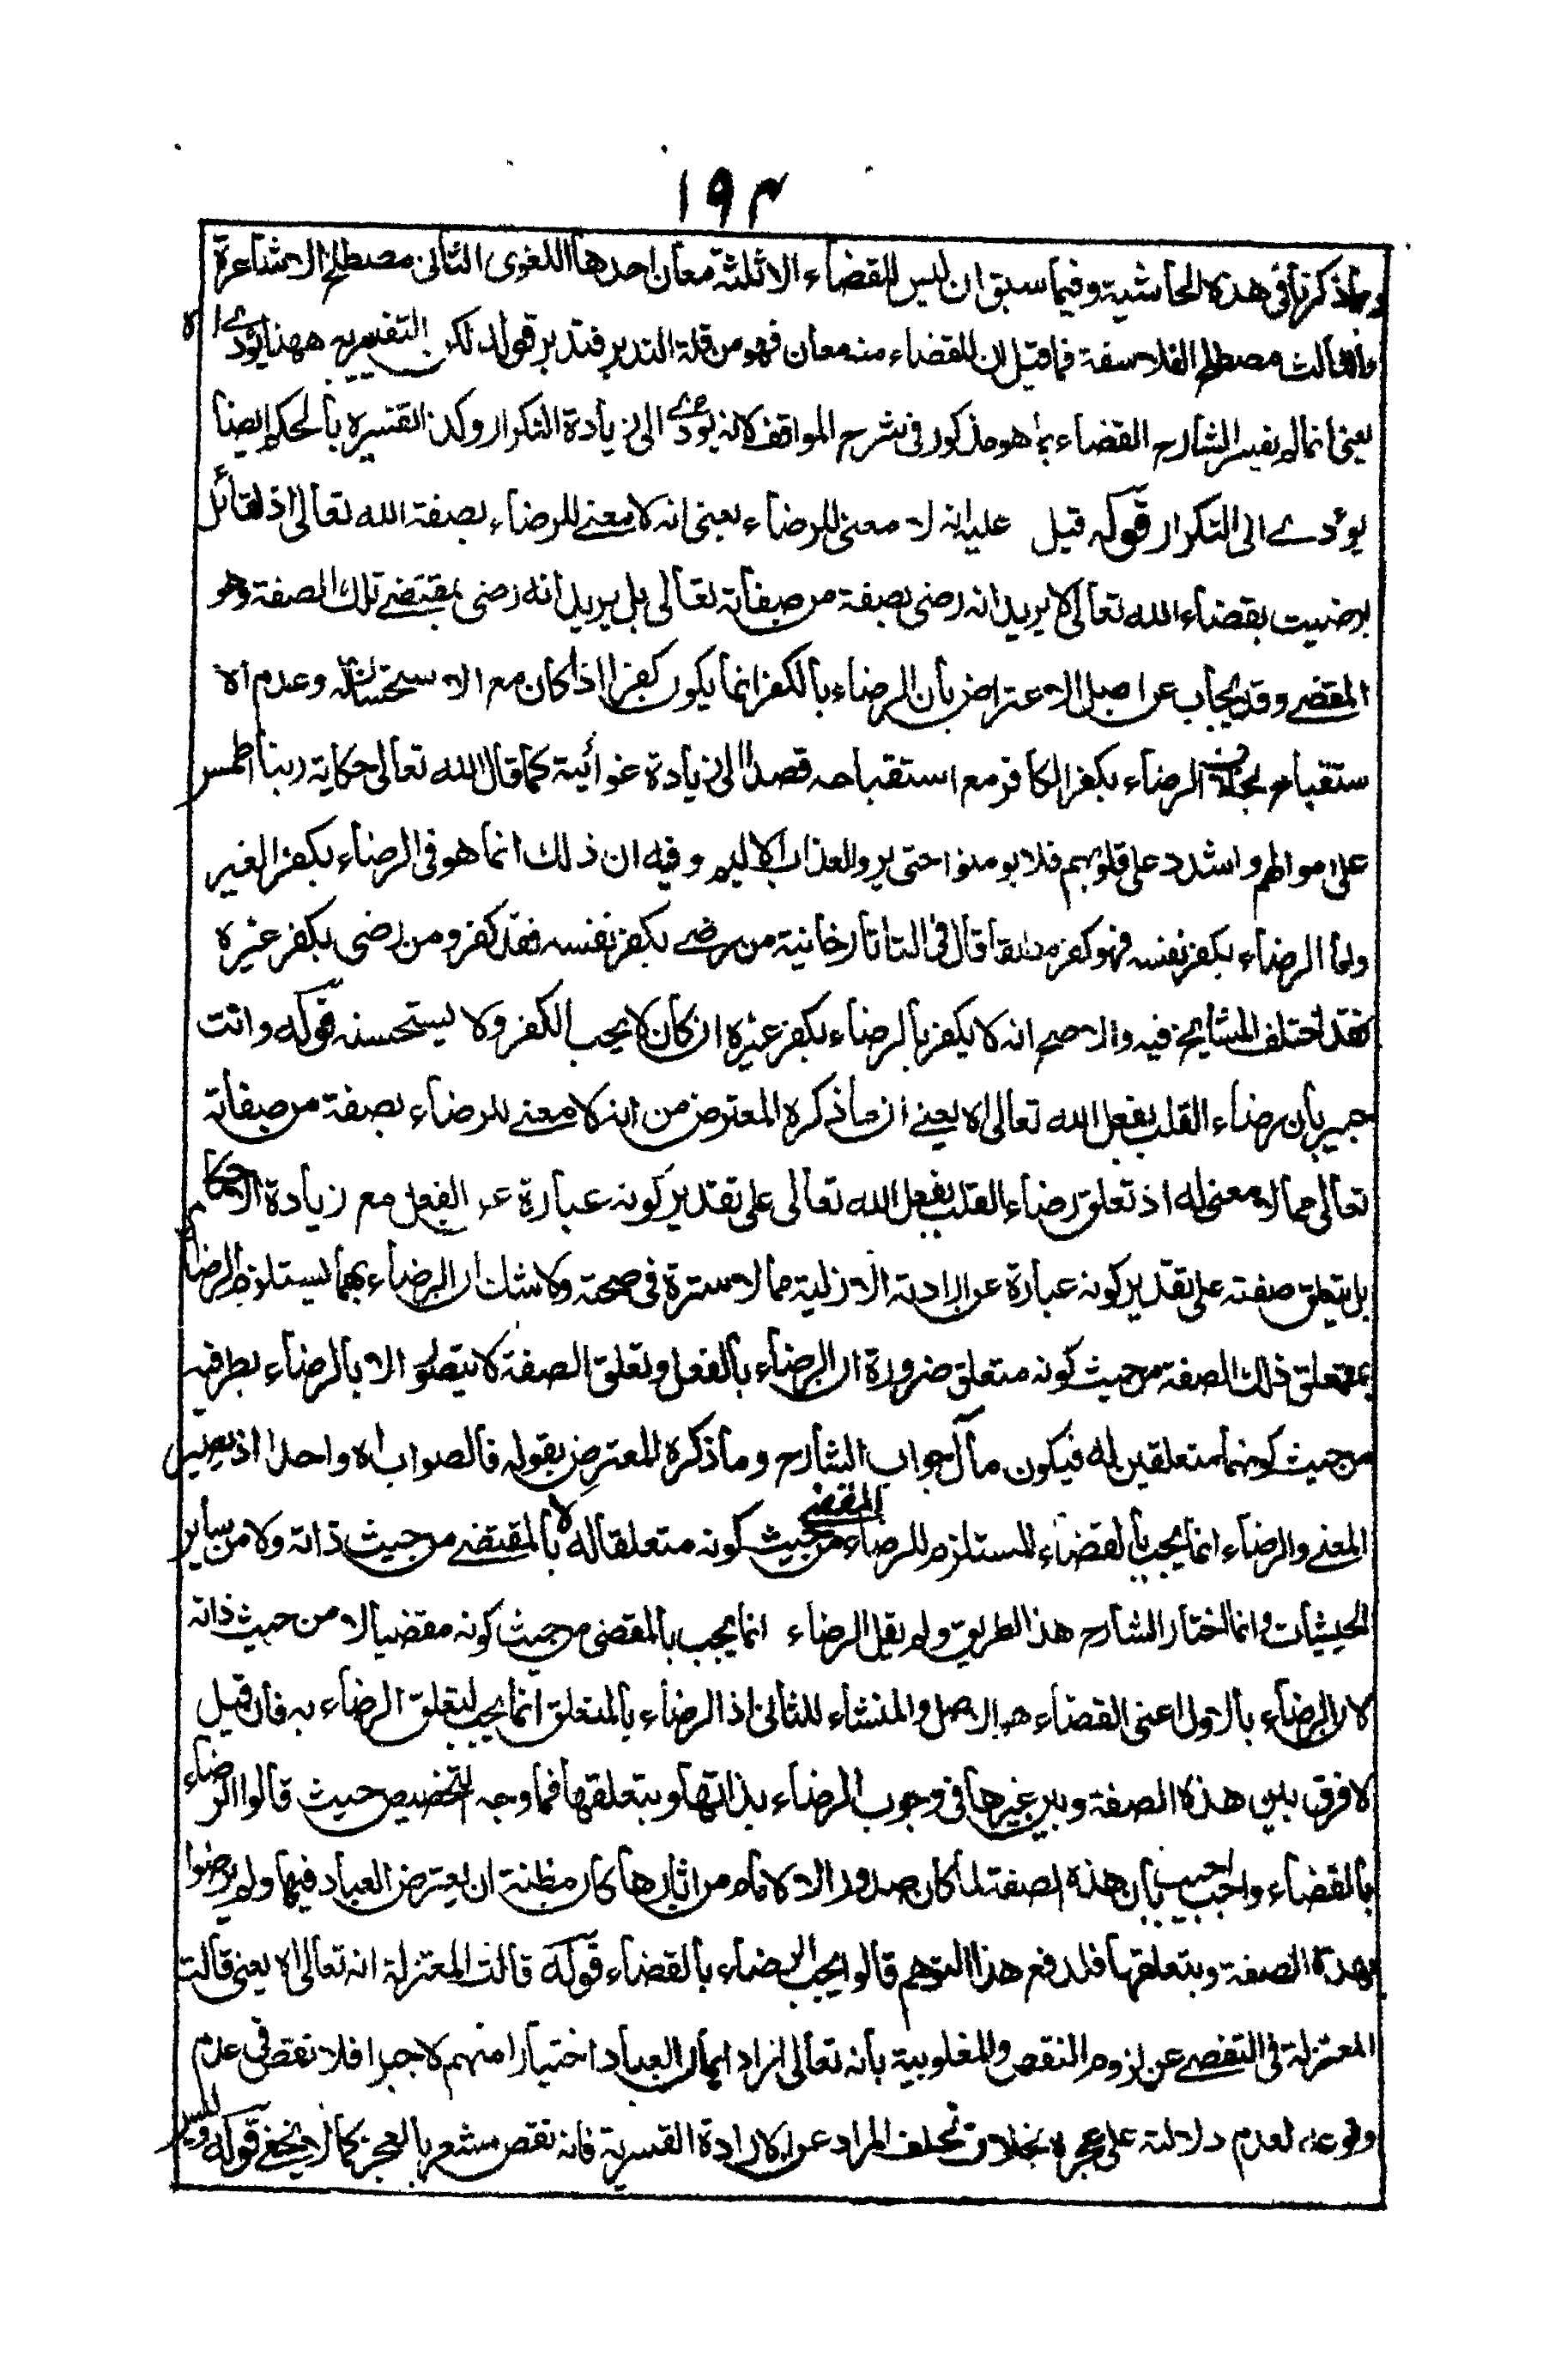 ١٩٣
وبما ذكرنا في هذه الحاشية وفيما سبق ان ليس للقضاء الا ثلثة معان احدها اللغوى الثانى مصطلح الاشاعرة
والثالث مصطلح الفلاسفة فما قيل ان للقضاء منه معان فهو من قلة التدبر فتدبر قوله لكن التفسير به ههنا يؤدے اه
يعنى انما لم يفسر الشارح القضاء بما هو مذكور فى شرح المواقف لانه يؤدے الى زيادة التكرار وكذا تفسيره بالحكم ايضا
يؤدے الى التكرار قوله قيل عليه انه لا معنى للرضاء يعنى انه لا معنے للرضاء بصفة الله تعالى اذ القائل
برضيت بقضاء الله تعالى لا يريد انه رضى بصفة من صفاته تعالى بل يريد انه رضى بمقتضے تلك الصفة وهو
المقضے وقد يجاب عن اصل الاعتراض بان الرضاء بالكفر انما يكون كفرا اذا كان مع الاستحسان له وعدم الا
ستقباح بخلاف الرضاء بكفر الكافر مع استقباحه قصدا الى زيادة غوائية كما قال الله تعالى حكاية ربنا اطمس
على اموالهم واشدد على قلوبهم فلا يومنوا حتى يروا العذاب الاليم وفيه ان ذلك انما هو فى الرضاء بكفر الغير
واما الرضاء بكفر نفسه فهو كفر مطلقا قال فى التاتارخانية من رضے بكفر نفسه فقد كفر ومن رضى بكفر غيره
فقد اختلف المشايخ فيه والاصح انه لا يكفر بالرضاء بكفر غيره ان كان لا يحب الكفر ولا يستحسنه قوله وانت
خبير بان رضاء القلب بفعل الله تعالى اه يعنے ان ما ذكره المعترض من انه لا معنے للرضاء بصفة من صفاته
تعالى مما لا معنى له اذ تعلق رضاء القلب بفعل الله تعالى على تقدير كونه عبارة عن الفعل مع زيادة الاحكام
بل بتعلق صفته على تقدير كونه عبارة عن الارادته الازلية مما لا سترة فى صحته ولا شك ان الرضاء بهما يستلزم الرضاء
بمتعلق ذلك الصفة من حيث كونه متعلق ضرورة ان الرضاء بالفعل وتعلق الصفة لا يتصور الا بالرضاء بطرفيه
من حيث كونهما متعلقين له فيكون مآل جواب الشارح وما ذكره المعترض بقوله فالصواب اه واحدا اذ يصير
المعنے والرضاء انما يجب بالقضاء المستلزم للرضاء المقضے من حيث كونه متعلقا له لا بالمقتضے من حيث ذاته ولا من ساير
الحيثيات وانما اختار الشارح هذا الطريق ولم يقل الرضاء انما يجب بالمقضى من حيث كونه مقضيا لا من حيث ذاته
لان الرضاء بالاول اعنى القضاء هو الاصل والمنشاء للثانى اذ الرضاء بالمتعلق انما يجب لتعلق الرضاء به فان قيل
لا فرق بين هذه الصفة وبين غيرها فى وجوب الرضاء بذاتها وبتعلقها فما وجه التخصيص حيث قالوا الرضاء
بالقضاء واجب اجيب بان هذه الصفة لما كان صدور الالام من اثارها كان مظنة ان يعترض العباد فيها ولم يرضوا
بهذه الصفة وبتعلقها فلدفع هذا التوهم قالوا يجب الرضاء بالقضاء قوله قالت المعتزلة انه تعالى اه يعنى قالت
المعتزلة فى التفصے عن لزوم النقص والمغلوبية بانه تعالى اراد ايمان العباد اختيارا منهم لا جبرا فلا نقص فى عدم
وقوعه لعدم دلالته على عجزه بخلاف تخلف المراد عن الارادة القسرية فانه نقص مشعر بالعجز كما لا يخفے قوله وليس